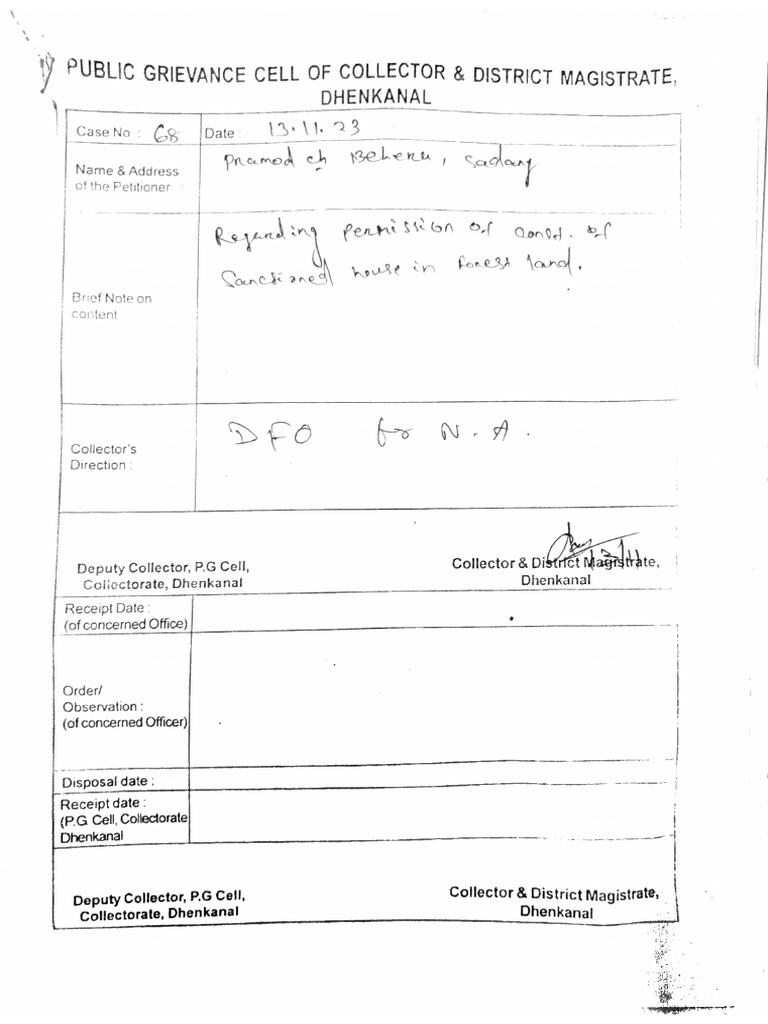 PUBLIC GRIEVANCE CELL OF COLLECTOR & DISTRICT MAGISTRATE,
DHENKANAL
Case No : 68 Date : 13.11.23
Name & Address
of the Petitioner :
Pramod ch Behera, Sadang
Regarding permission of const. of
Sanctioned house in forest land.
Brief Note on
content
Collector's
Direction :
DFO for N.A.
Deputy Collector, P.G Cell,
Collectorate, Dhenkanal
Collector & District Magistrate,
Dhenkanal
13/11
Receipt Date :
(of concerned Office)
Order/
Observation :
(of concerned Officer)
Disposal date :
Receipt date :
(P.G. Cell, Collectorate
Dhenkanal
Deputy Collector, P.G Cell,
Collectorate, Dhenkanal
Collector & District Magistrate,
Dhenkanal